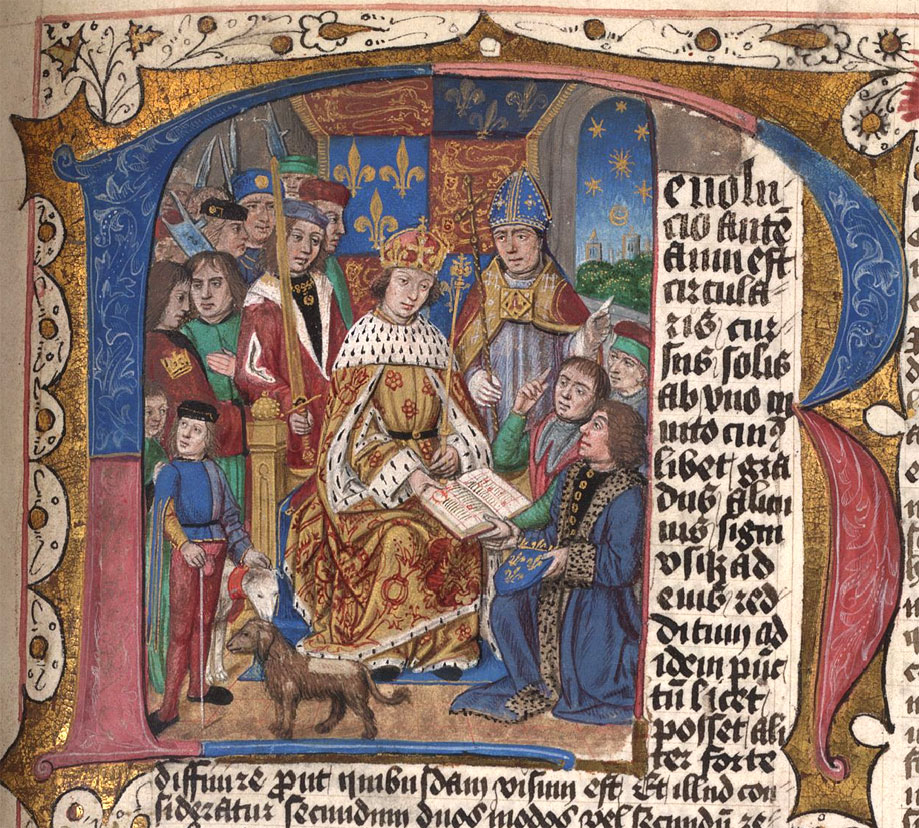 Revolu
cio ante
anni est
circula
ris cur
sus solis
ab vno pu
ncto cuiꝰ
libet gra
dus alicui
us signi
vsqꝫ ad
eius red
ditum ad
idem pūc
tū licet
posset ali
ter forte
diffinire prout quibusdam visum est Et illud con
sideratur secundum duos modos vel secundū re